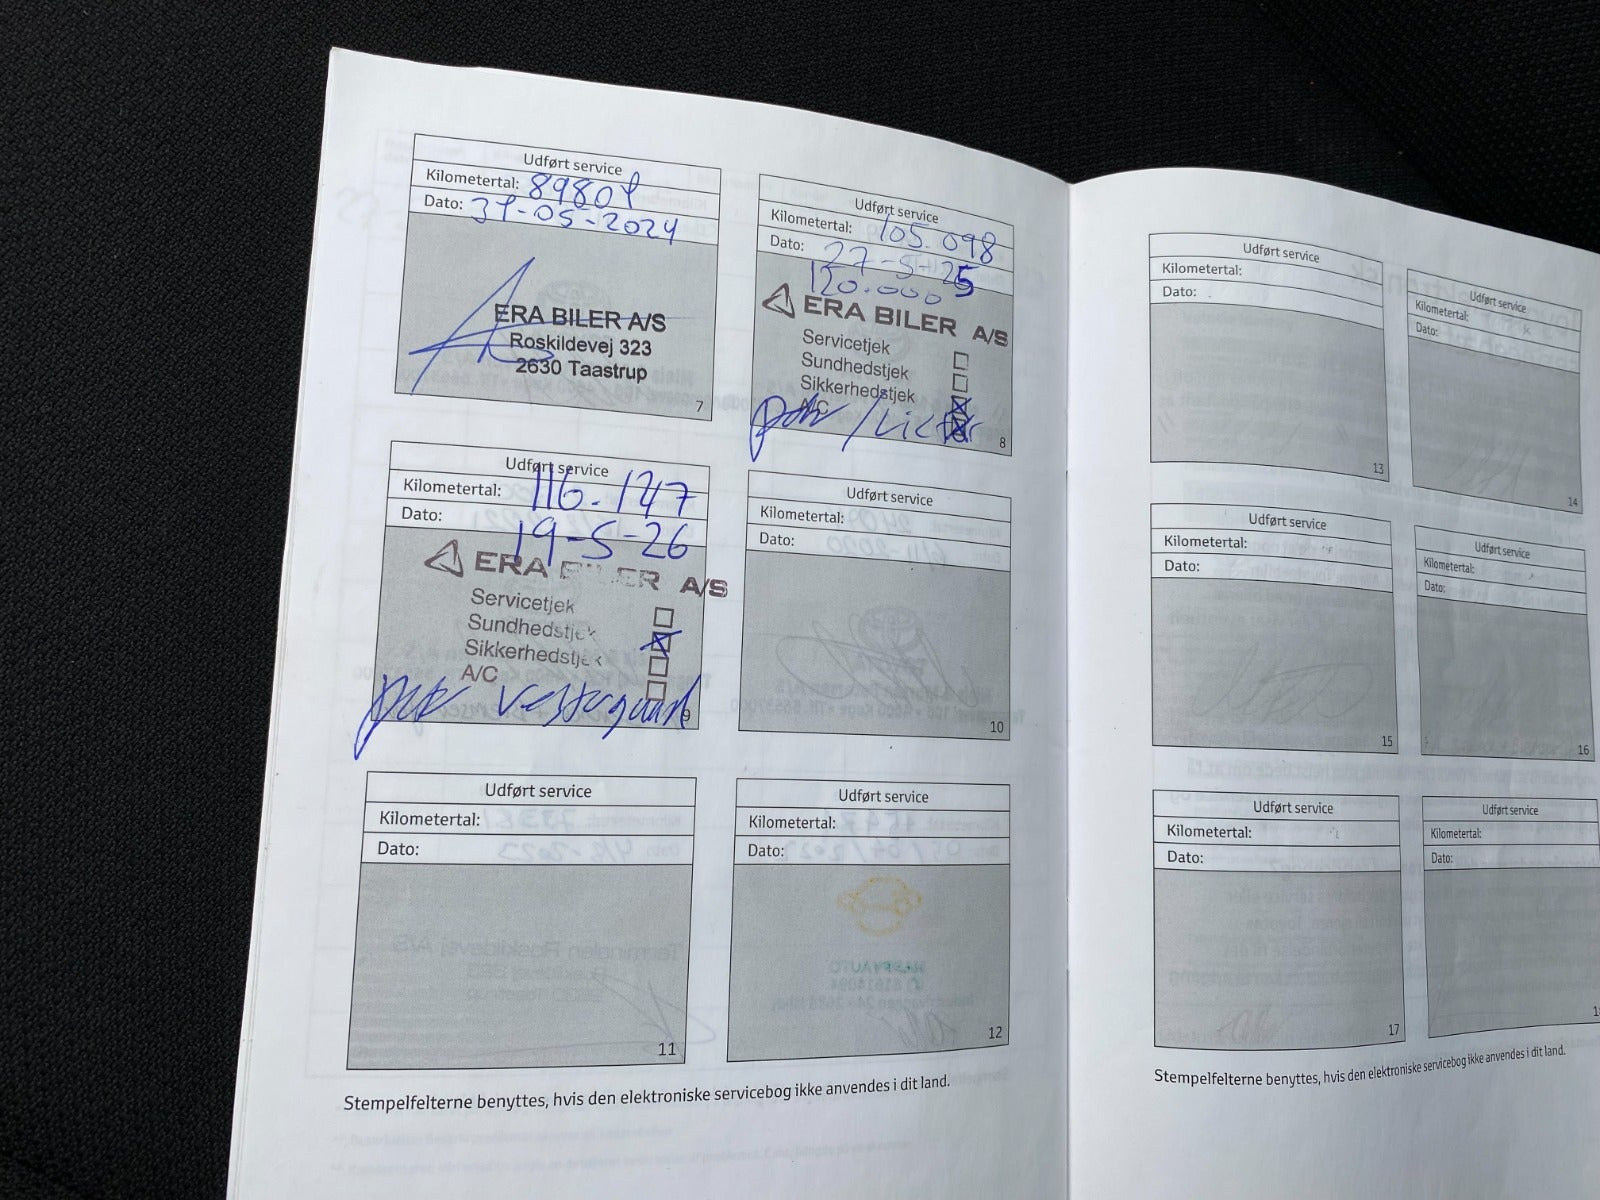 Udført service
Kilometertal: 89801
Dato: 31-05-2024
ERA BILER A/S
Roskildevej 323
2630 Taastrup
7
Udført service
Kilometertal: 105.098
Dato: 27-5-25
120.000
ERA BILER A/S
Servicetjek
Sundhedstjek
Sikkerhedstjek
A/C
8
Udført service
Kilometertal: 116.147
Dato: 19-5-26
ERA BILER A/S
Servicetjek
Sundhedstjek
Sikkerhedstjek
A/C
9
Udført service
Kilometertal:
Dato:
10
Udført service
Kilometertal:
Dato:
11
Udført service
Kilometertal:
Dato:
12
Stempelfelterne benyttes, hvis den elektroniske servicebog ikke anvendes i dit land.
Udført service
Kilometertal:
Dato:
13
Udført service
Kilometertal:
Dato:
14
Udført service
Kilometertal:
Dato:
15
Udført service
Kilometertal:
Dato:
16
Udført service
Kilometertal:
Dato:
17
Udført service
Kilometertal:
Dato:
Stempelfelterne benyttes, hvis den elektroniske servicebog ikke anvendes i dit land.